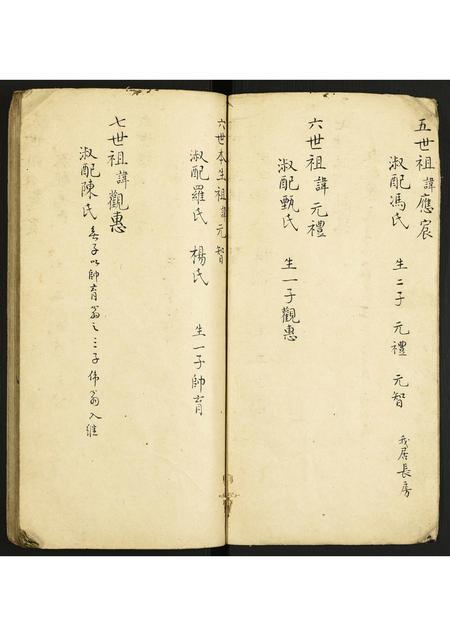 五世祖諱應宸
淑配馮氏 生二子 元禮 元智
我居長房
六世祖諱元禮
淑配甄氏 生一子觀惠
六世本生祖諱元智
淑配羅氏 楊氏 生一子帥育
七世祖諱觀惠
淑配陳氏 子以帥育翁之三子偉翁入繼